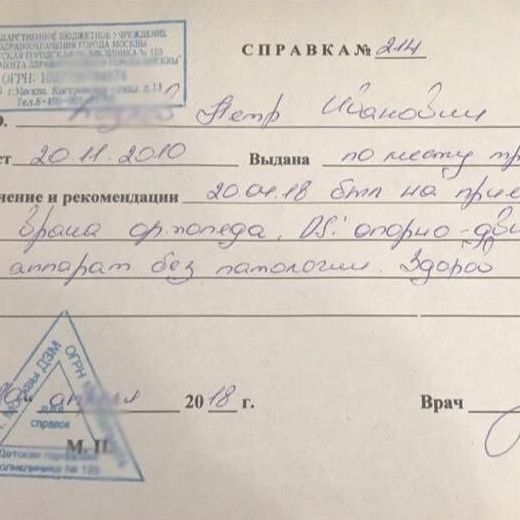 ДАРСТВЕННОЕ БЮДЖЕТНОЕ УЧРЕЖДЕНИЕ
ДРАВООХРАНЕНИЯ ГОРОДА МОСКВЫ
СКАЯ ГОРОДСКАЯ ПОЛИКЛИНИКА № 125
ОГРН:
г.Москва, улица, д.14
Тел.8-495-
СПРАВКА № 214
О. Петр Иванович
ст 20.11.2010 Выдана по месту тр
чение и рекомендации 20.04.18 был на прие
врача ортопеда. DS: опорно-дви
аппарат без патологии. Здоров
г. Москвы ДЗМ ОГРН
для
справок
Детская городская
поликлиника № 125
апреля 2018 г. Врач
М. П.